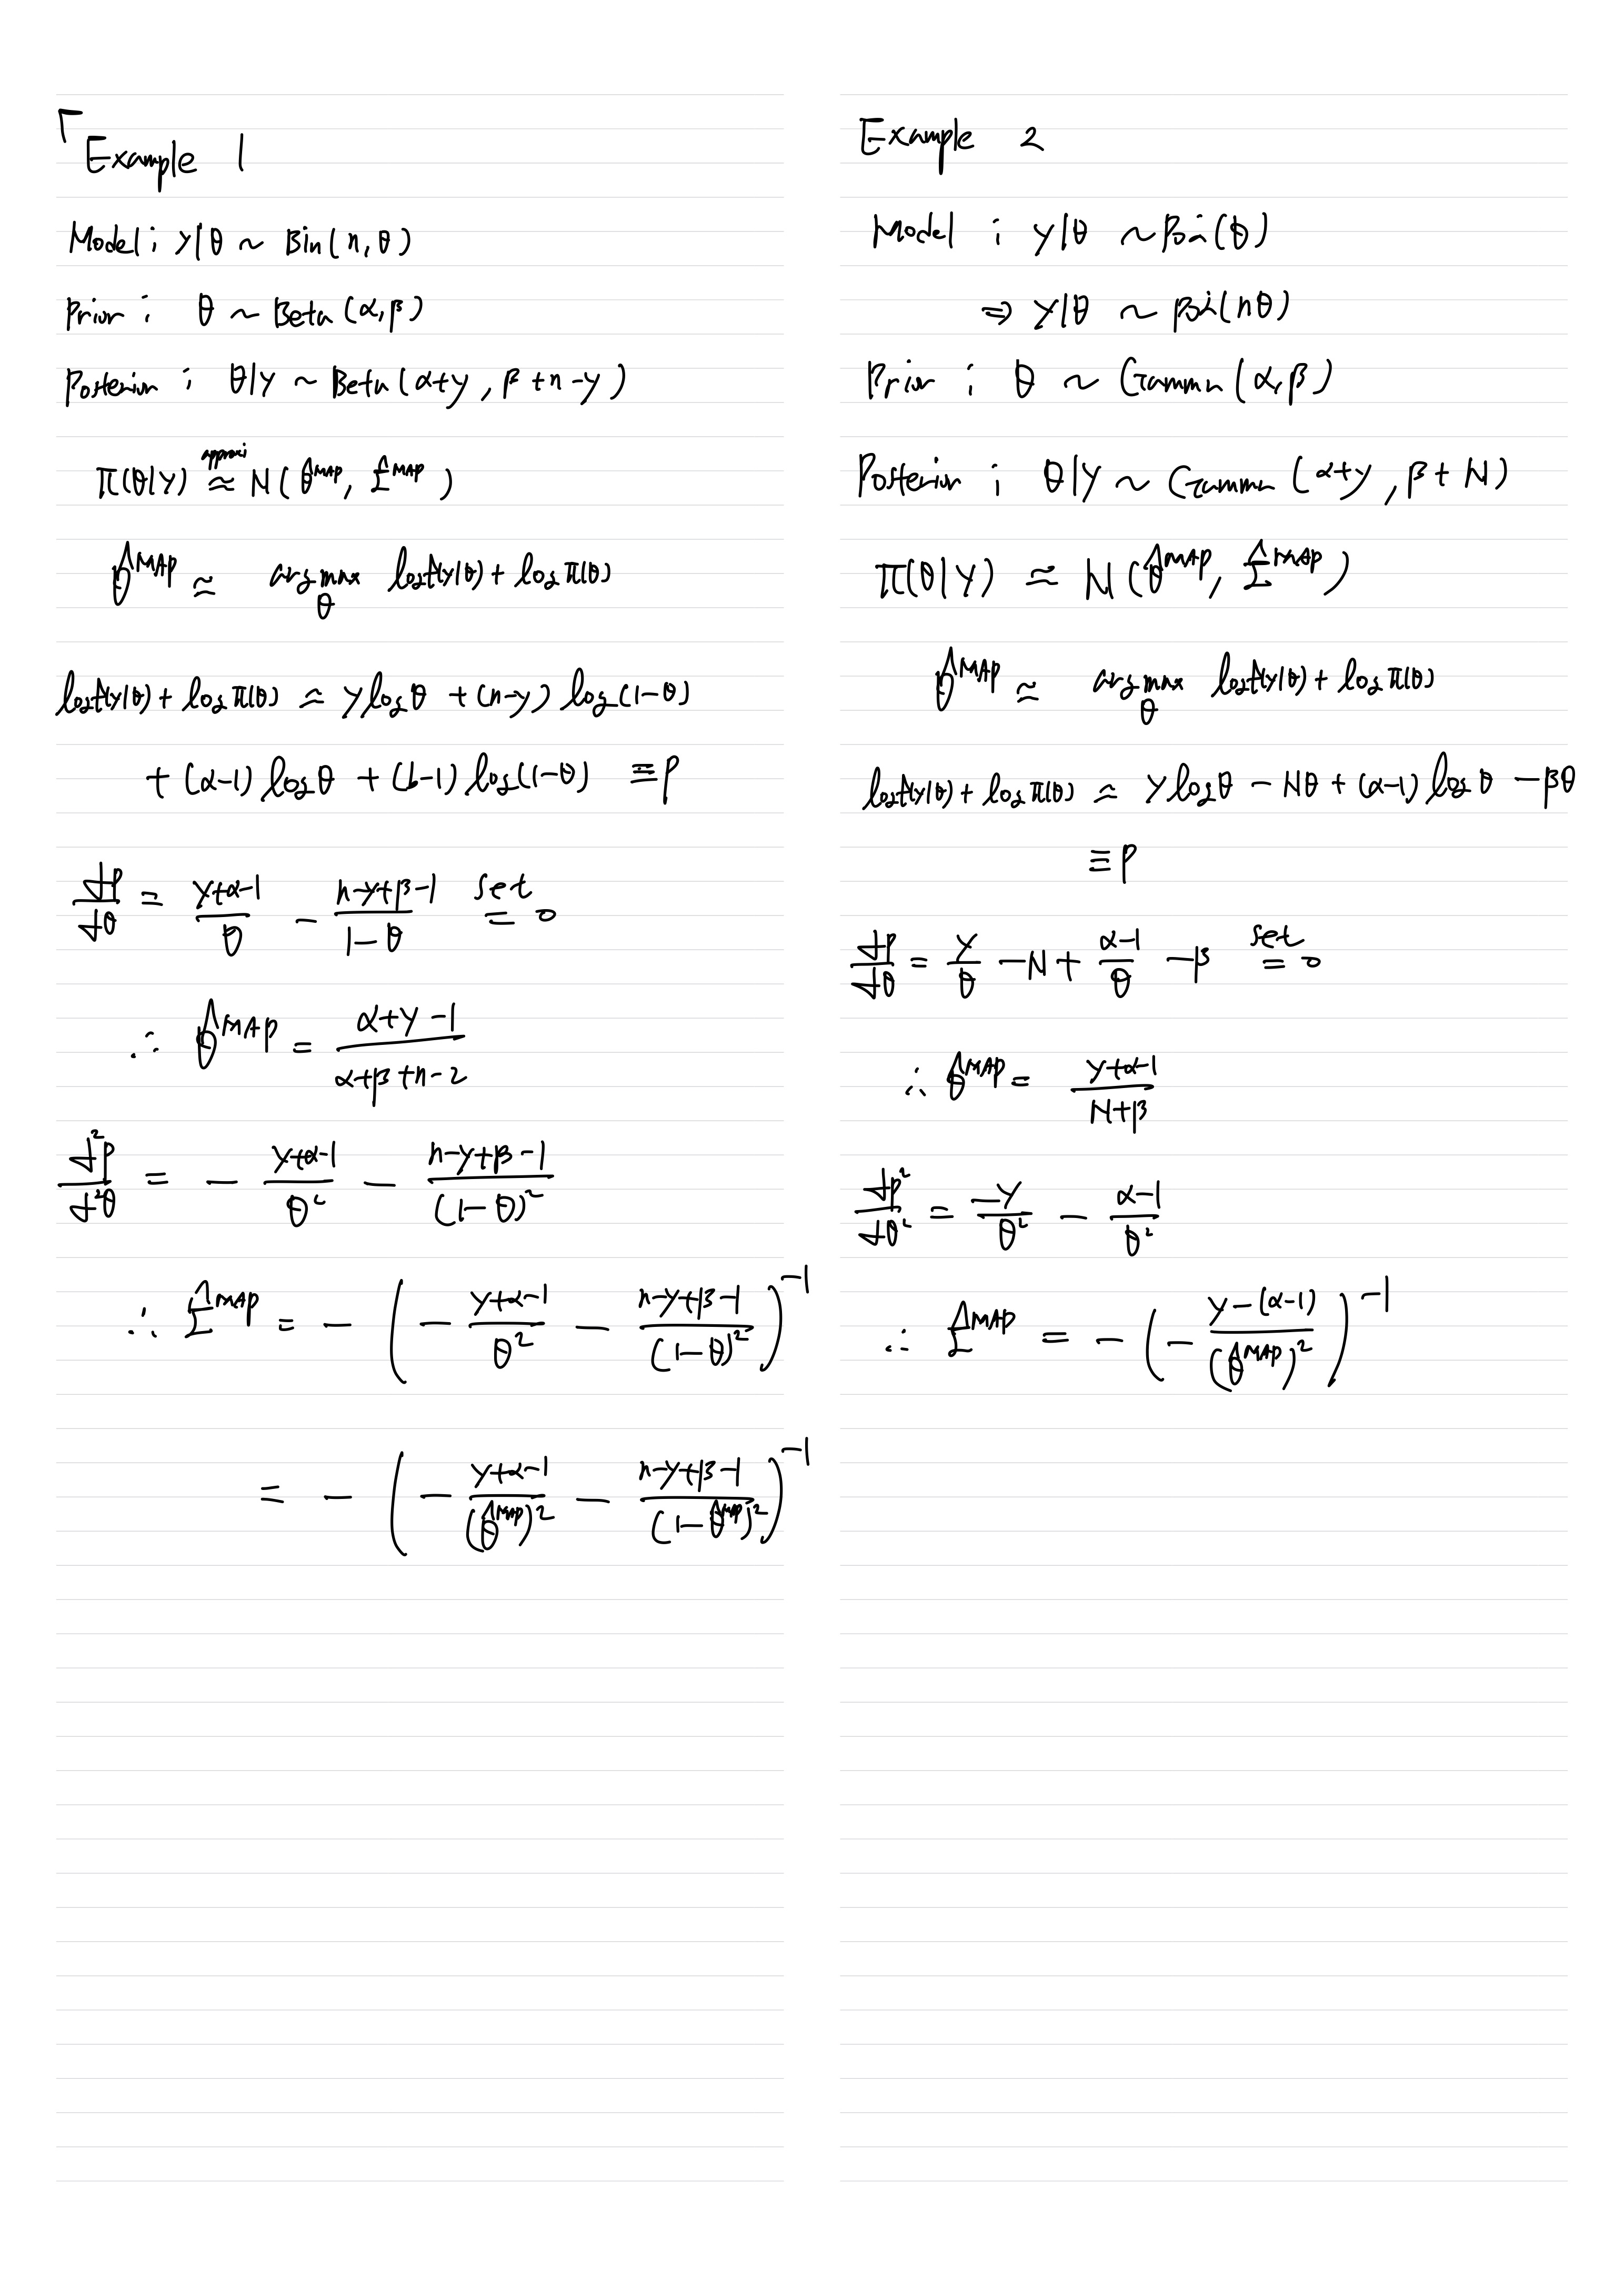 Example 1
Model ; y|θ ~ Bin(n, θ)
Prior ; θ ~ Beta (α, β)
Posterior ; θ|y ~ Beta (α+y, β+n-y)
π(θ|y) approxi ≈ N(θ̂^MAP, Σ̂^MAP)
θ̂^MAP ≈ argmax_θ log f(y|θ) + log π(θ)
log f(y|θ) + log π(θ) ≈ y log θ + (n-y) log(1-θ)
+ (α-1) log θ + (b-1) log(1-θ) ≡ P
dP/dθ = (y+α-1)/θ - (n-y+β-1)/(1-θ) set = 0
∴ θ̂^MAP = (α+y-1)/(α+β+n-2)
d²P/d²θ = - (y+α-1)/θ² - (n-y+β-1)/(1-θ)²
∴ Σ̂^MAP = - ( - (y+α-1)/θ² - (n-y+β-1)/(1-θ)² )^-1
= - ( - (y+α-1)/(θ̂^MAP)² - (n-y+β-1)/(1-θ̂^MAP)² )^-1
Example 2
Model ; y|θ ~ Poi(θ)
⇒ y|θ ~ Poi(nθ)
Prior ; θ ~ Gamma (α, β)
Posterior ; θ|y ~ Gamma (α+y, β+N)
π(θ|y) ≈ N(θ̂^MAP, Σ̂^MAP)
θ̂^MAP ≈ argmax_θ log f(y|θ) + log π(θ)
log f(y|θ) + log π(θ) ≈ y log θ - Nθ + (α-1) log θ - βθ
≡ P
dP/dθ = y/θ - N + (α-1)/θ - β set = 0
∴ θ̂^MAP = (y+α-1)/(N+β)
dP²/dθ² = -y/θ² - (α-1)/θ²
∴ Σ̂^MAP = - ( - (y-(α-1))/(θ̂^MAP)² )^-1